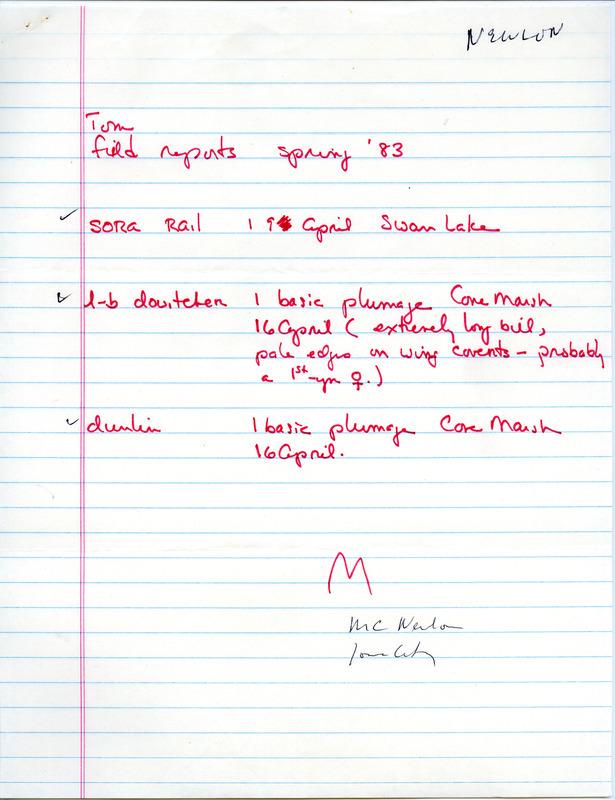 NEWLON
Tom
field reports spring '83
SORA Rail 1 9 April Swan Lake
l-b dowitcher 1 basic plumage Cone Marsh
16 April ( extremely long bill,
pale edges on wing coverts - probably
a 1st-yr ♀.)
dunlin 1 basic plumage Cone Marsh
16 April.
M
MC Newlon
Iowa City